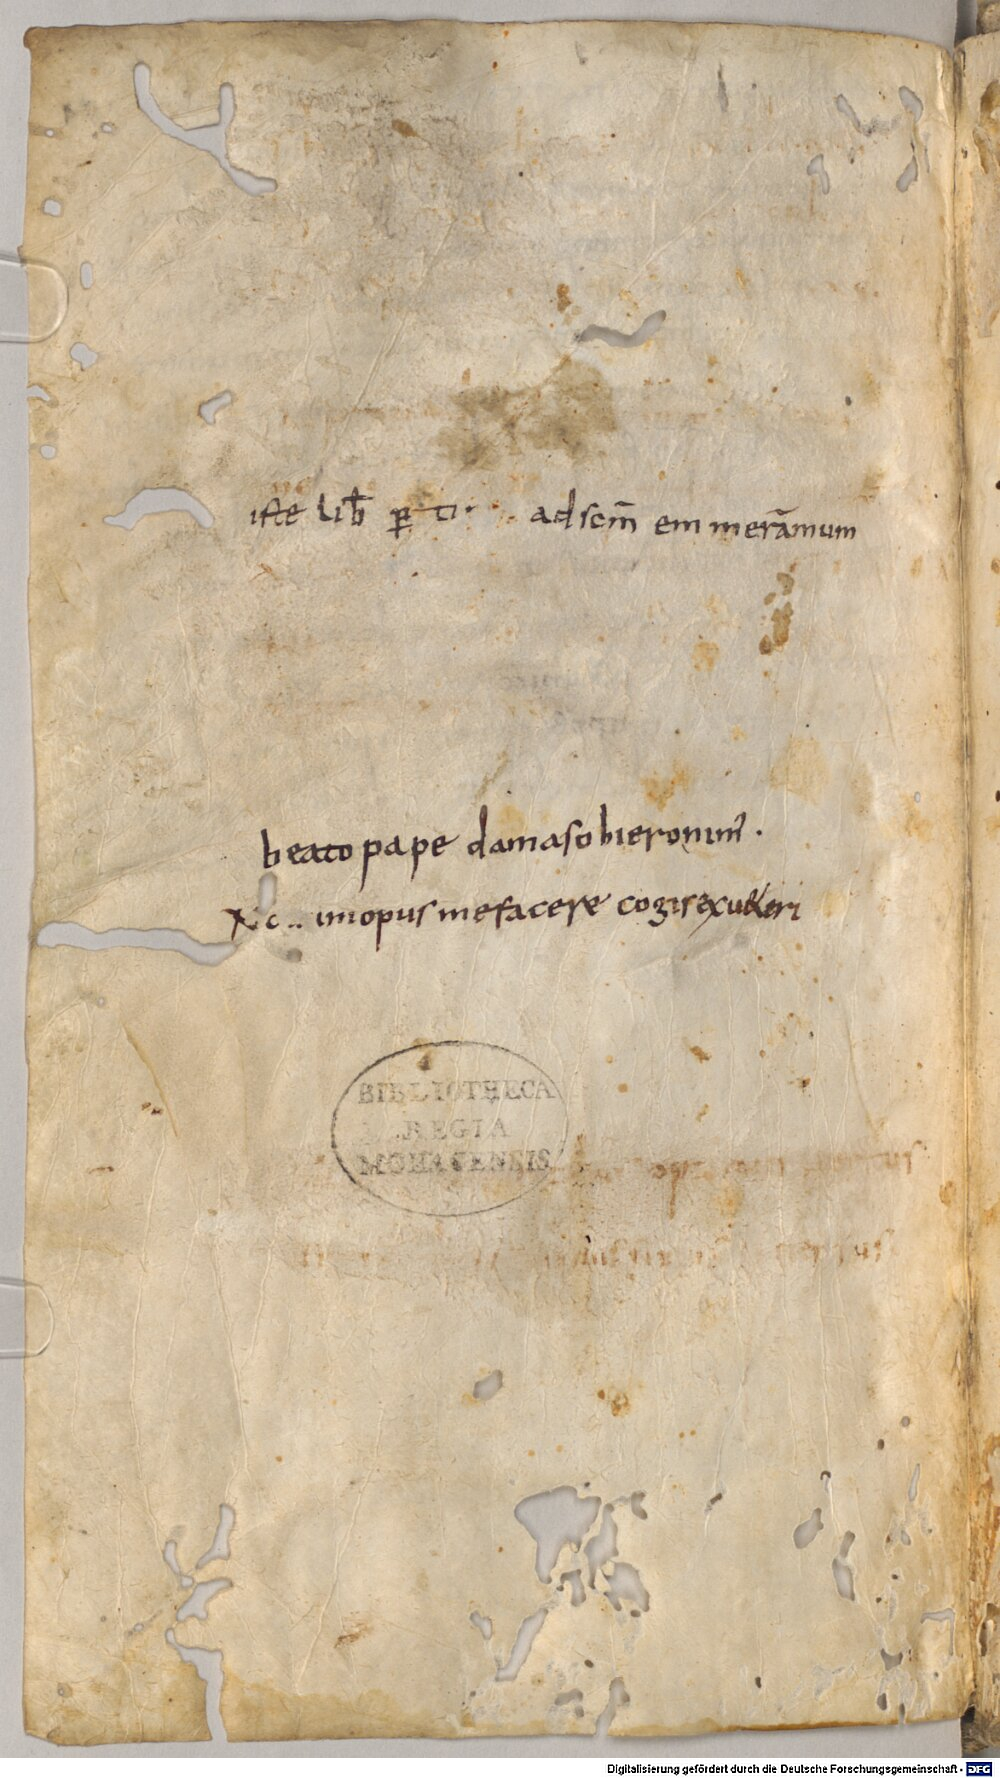 iste lib̄ ꝑti· ad scm̄ emmerāmum
beato pape damaso hieronim̄ ·
opus me facere cogis ex ueteri
BIBLIOTHECA
REGIA
MONACENSIS
Digitalisierung gefördert durch die Deutsche Forschungsgemeinschaft - DFG